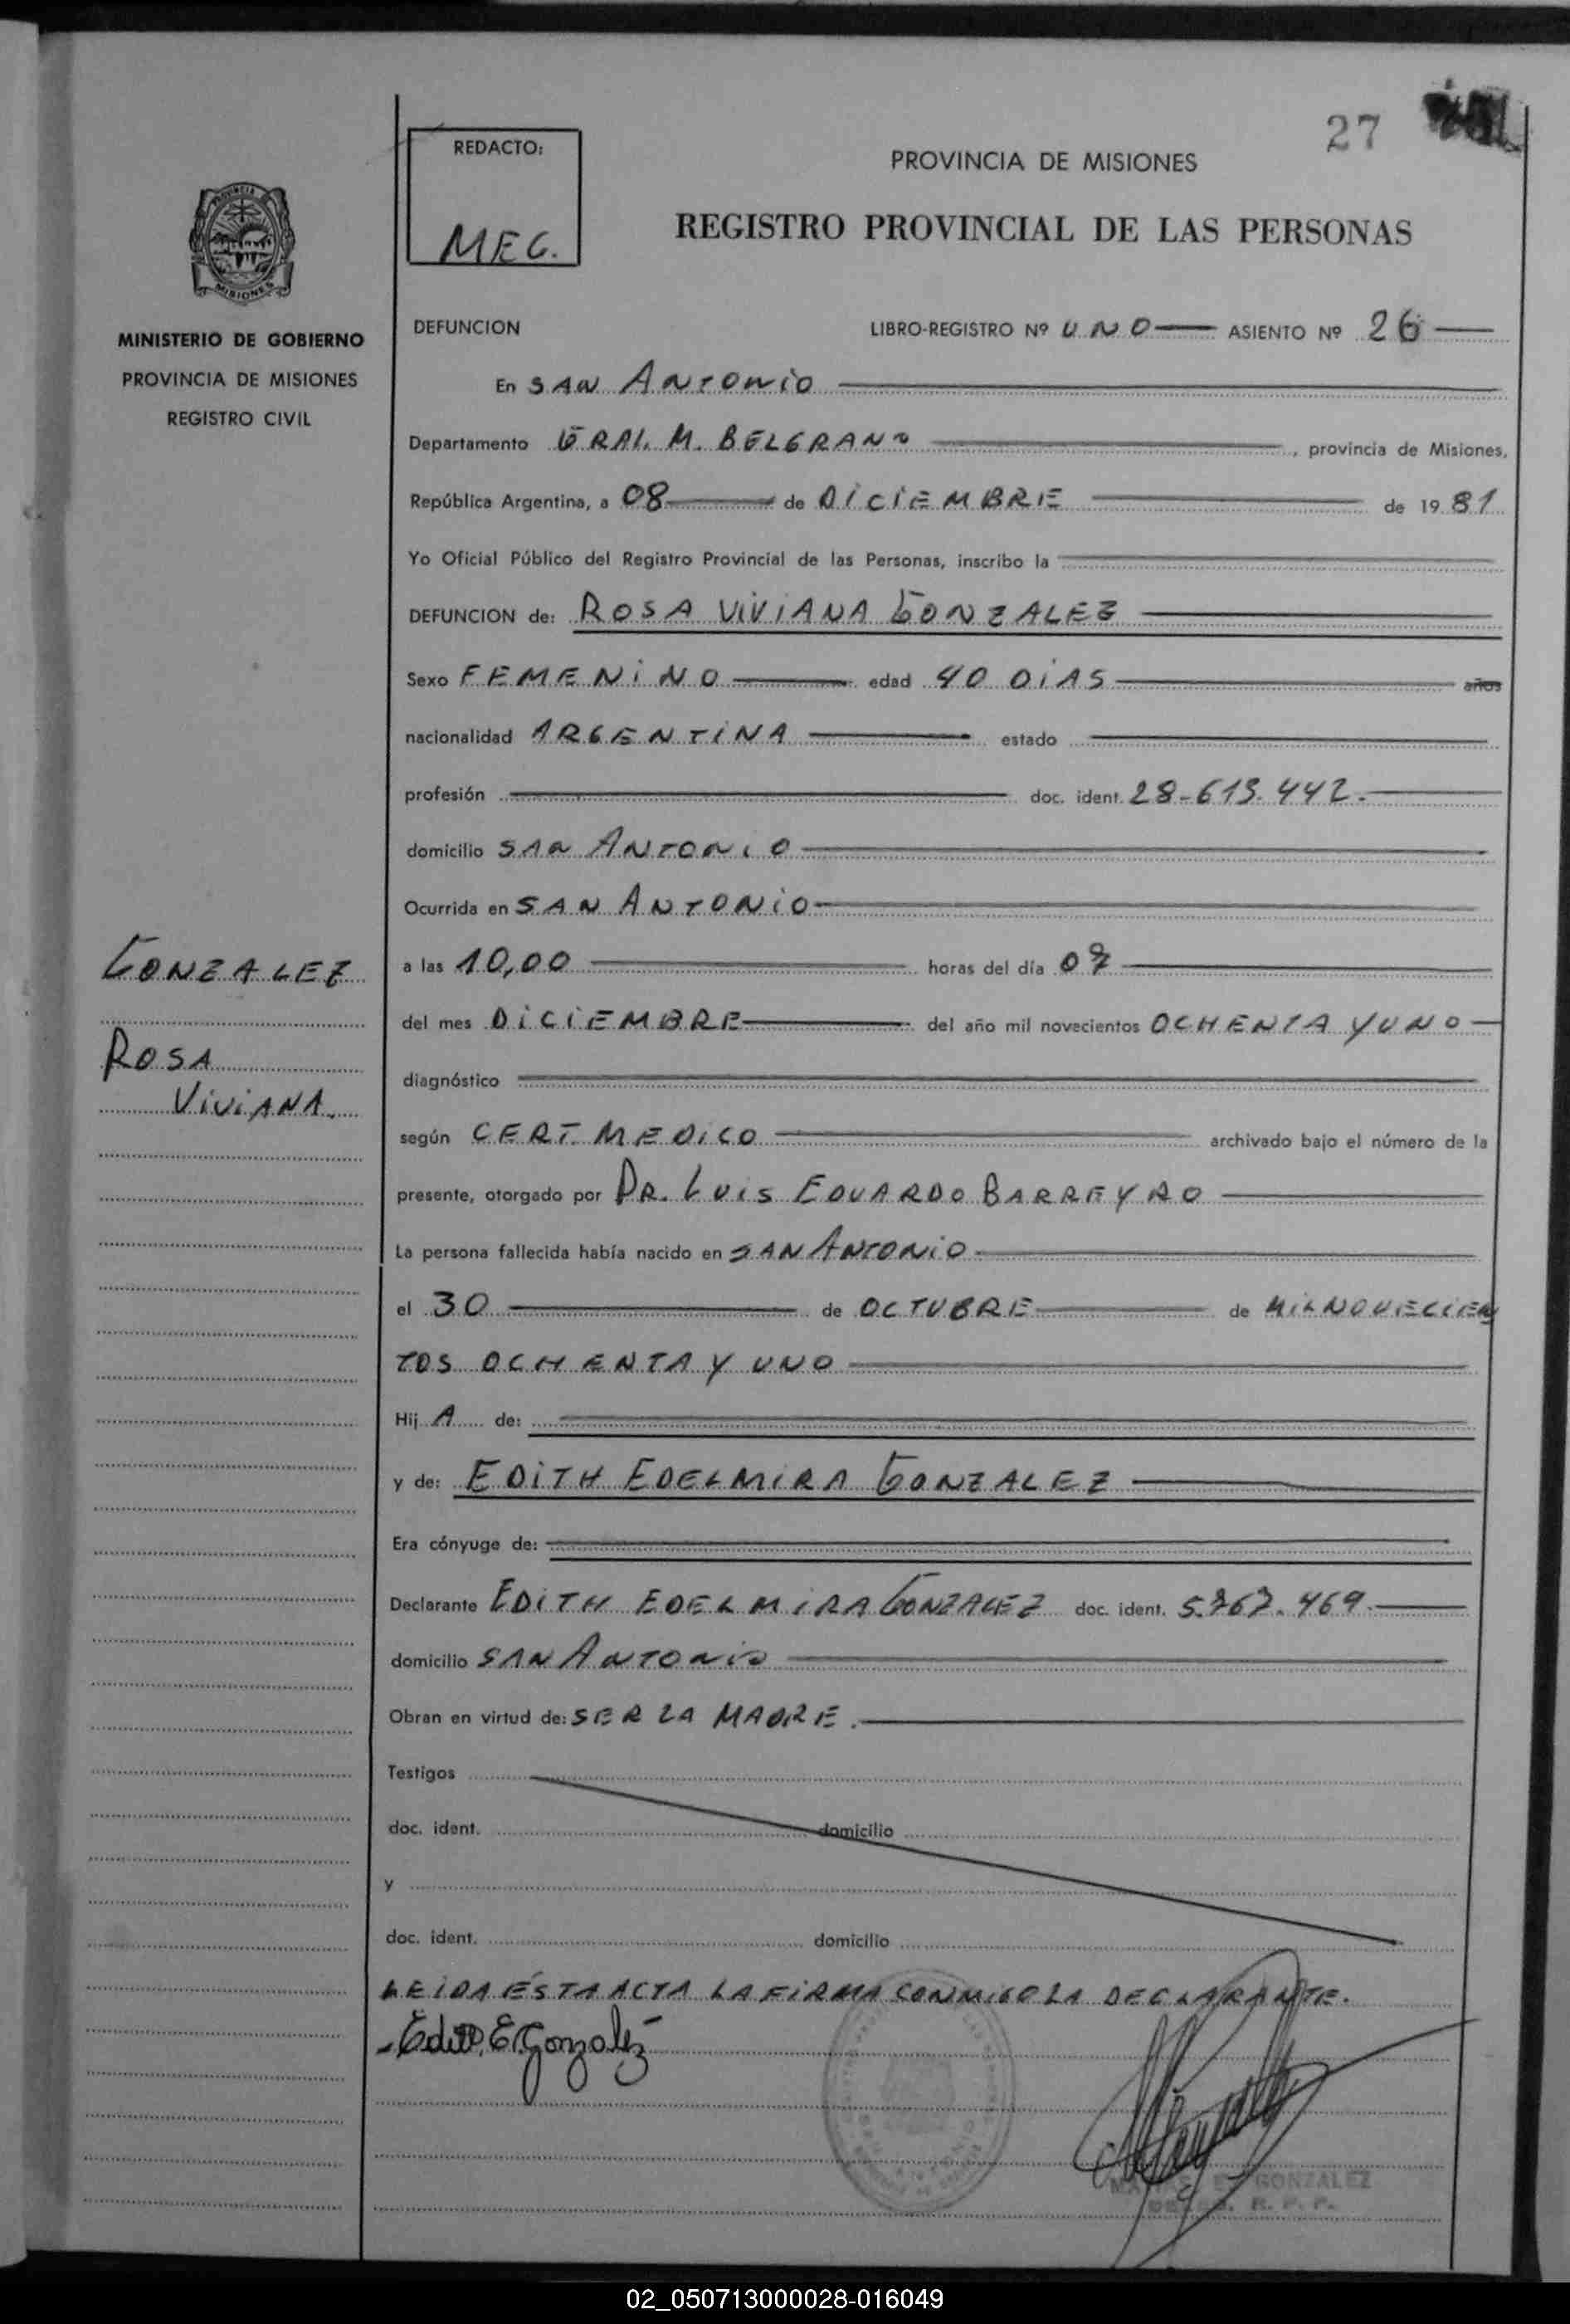 27
REDACTO:
MEG.
PROVINCIA DE MISIONES
REGISTRO PROVINCIAL DE LAS PERSONAS
MINISTERIO DE GOBIERNO
PROVINCIA DE MISIONES
REGISTRO CIVIL
DEFUNCION LIBRO-REGISTRO Nº UNO ASIENTO Nº 26
En SAN ANTONIO
Departamento GRAL. M. BELGRANO, provincia de Misiones,
República Argentina, a 08 de DICIEMBRE de 1981
Yo Oficial Público del Registro Provincial de las Personas, inscribo la
DEFUNCION de: ROSA VIVIANA GONZALEZ
Sexo FEMENINO edad 40 DIAS años
nacionalidad ARGENTINA estado
profesión doc. ident. 28-613.442.
domicilio SAN ANTONIO
Ocurrida en SAN ANTONIO
GONZALEZ
ROSA
VIVIANA.
a las 10,00 horas del día 07
del mes DICIEMBRE del año mil novecientos OCHENTA Y UNO
diagnóstico
según CERT. MEDICO archivado bajo el número de la
presente, otorgado por DR. LUIS EDUARDO BARREYRO
La persona fallecida había nacido en SAN ANTONIO
el 30 de OCTUBRE de MILNOVECIEN
TOS OCHENTA Y UNO
Hij A de:
y de: EDITH EDELMIRA GONZALEZ
Era cónyuge de:
Declarante EDITH EDELMIRA GONZALEZ doc. ident. 5.767.469.
domicilio SAN ANTONIO
Obran en virtud de: SER LA MADRE.
Testigos
doc. ident. domicilio
y
doc. ident. domicilio
LEIDA ESTA ACTA LA FIRMA CONMIGO LA DECLARANTE.
Edith E. Gonzalez
GONZALEZ
R. P. P.
02_050713000028-016049